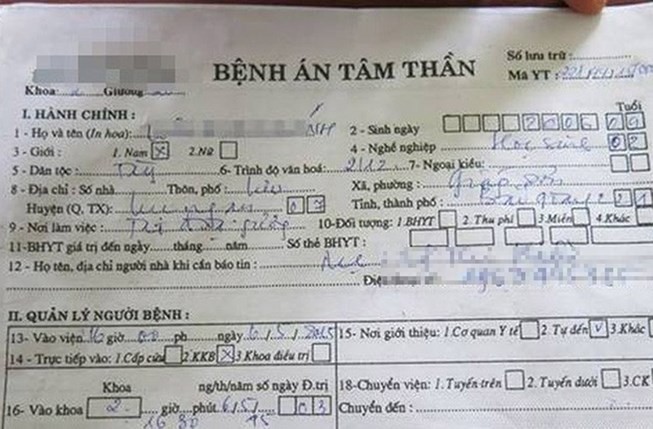 BỆNH ÁN TÂM THẦN
Số lưu trữ:
Mã YT:
Khoa: 2 Giường
I. HÀNH CHÍNH: Tuổi
1 - Họ và tên (In hoa): 2 - Sinh ngày 2006 09
3 - Giới: 1. Nam X 2. Nữ 4 - Nghề nghiệp Học sinh 02
5 - Dân tộc: Tày 6- Trình độ văn hoá: 2/12 7- Ngoại kiều:
8 - Địa chỉ: Số nhà Thôn, phố: Xã, phường: Giáp Sơn
Huyện (Q, TX): 07 Tỉnh, thành phố: Bắc Giang 21
9 - Nơi làm việc: 10-Đối tượng: 1.BHYT 2.Thu phí 3.Miễn 4.Khác
11-BHYT giá trị đến ngày tháng năm Số thẻ BHYT:
12 - Họ tên, địa chỉ người nhà khi cần báo tin:
II. QUẢN LÝ NGƯỜI BỆNH:
13- Vào viện 16 giờ 00 ph ngày 6/5/2015 15- Nơi giới thiệu: 1.Cơ quan Y tế 2. Tự đến V 3.Khác
14 - Trực tiếp vào: 1.Cấp cứu 2.KKB X 3.Khoa điều trị
Khoa ng/th/năm số ngày Đ.trị 18-Chuyển viện: 1.Tuyến trên 2. Tuyến dưới 3.CK
16- Vào khoa 2 giờ phút 6/5/ 03 Chuyển đến:
16 30 15